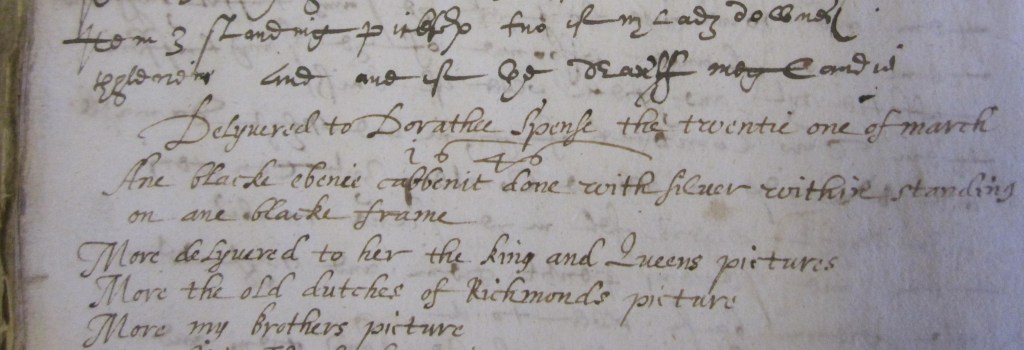 Item 3 standing two is my Lady
and ane is
Delyvered to Dorathie Spense the twentie one of march
1646
Ane blacke ebenie cabbenit done with silver within standing
on ane blacke frame
More delyvered to her the king and Queens pictures
More the old dutches of Richmonds picture
More my brothers picture